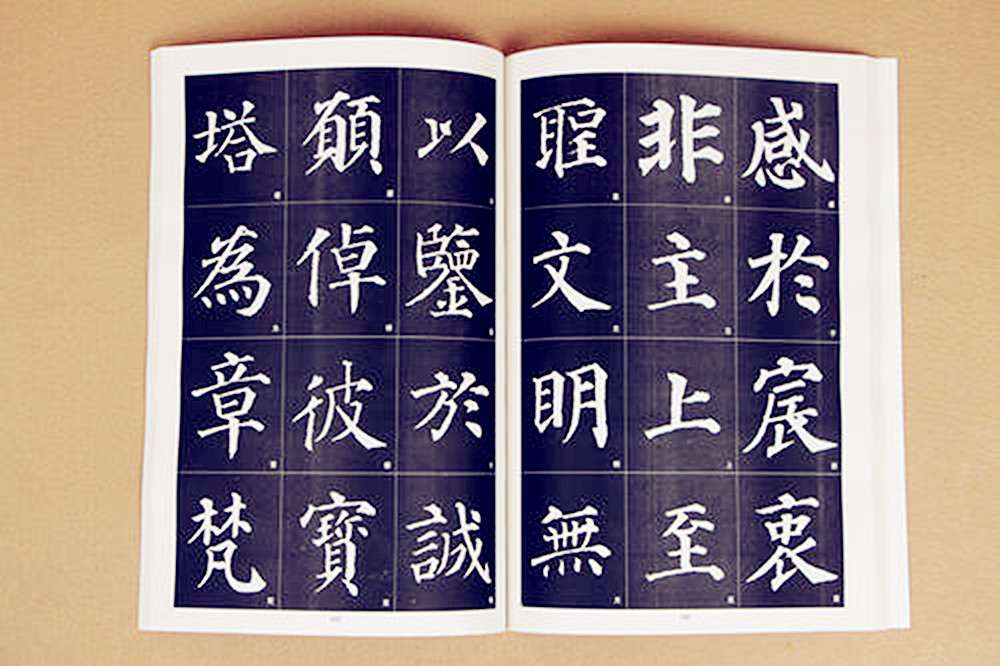 感於宸衷
非主上至
聖文明無
以鑒於誠
願倬彼寶
塔為章梵